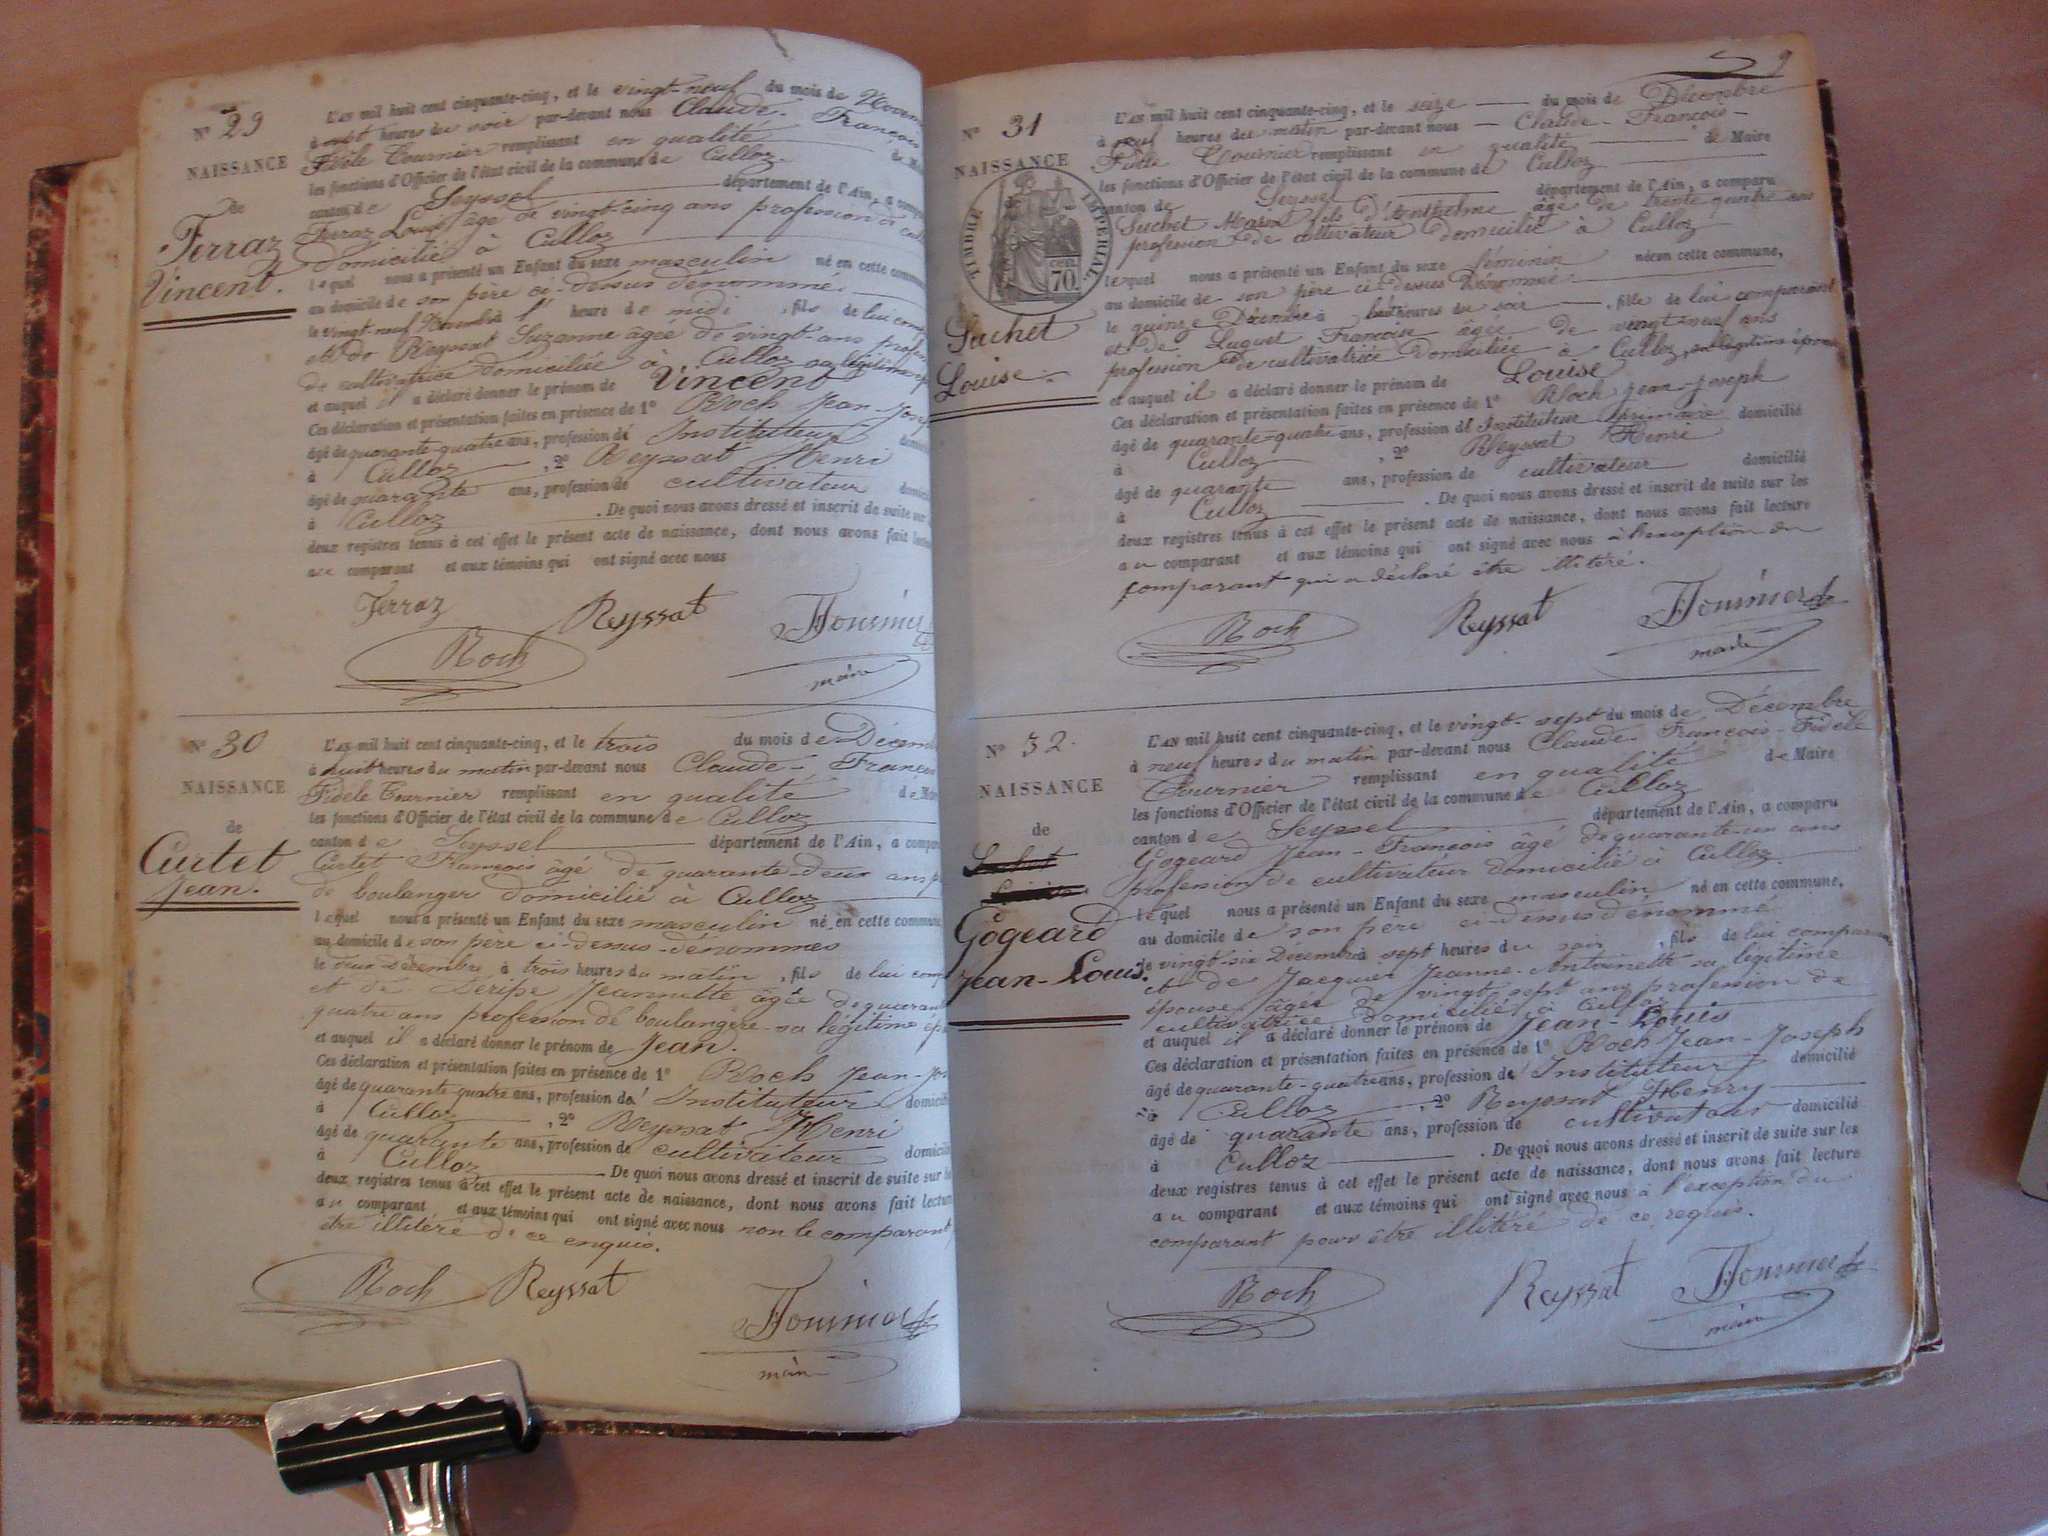 N° 29
NAISSANCE
de
Ferraz
Vincent.
L'AN mil huit cent cinquante-cinq, et le vingt-neuf du mois de Novem
à heures du soir par-devant nous Claude- François
Fidèle Tournier remplissant en qualité de M
les fonctions d'Officier de l'état civil de la commune de Culloz
canton de Seyssel département de l'Ain, a compa
Ferraz Louis âgé de vingt-cinq ans profession de cul
domicilié à Culloz
lequel nous a présenté un Enfant du sexe masculin né en cette commune
au domicile de son père ci-dessus dénommé.
le vingt-neuf Novembre à l' heure de midi , fils de lui comp
et de Reyssat Suzanne âgée de vingt-ans profess
de cultivatrice domiciliée à Culloz sa légitime ép
et auquel il a déclaré donner le prénom de Vincent
Ces déclaration et présentation faites en présence de 1° Roch Jean-Jose
âgé de quarante-quatre ans, profession d' Instituteur domicil
à Culloz , 2° Reyssat Henri
âgé de quarante ans, profession de cultivateur domici
à Culloz . De quoi nous avons dressé et inscrit de suite sur
deux registres tenus à cet effet le présent acte de naissance, dont nous avons fait lectu
au comparant et aux témoins qui ont signé avec nous
Ferraz
Roch Reyssat Tournier
maire
N° 30
NAISSANCE
de
Curtet
Jean.
L'AN mil huit cent cinquante-cinq, et le trois du mois de Décem
à huit heures du matin par-devant nous Claude- Franç
Fidèle Tournier remplissant en qualité de Mai
les fonctions d'Officier de l'état civil de la commune de Culloz
canton de Seyssel département de l'Ain, a compa
Curtet François âgé de quarante-deux ans p
de boulanger domicilié à Culloz
lequel nous a présenté un Enfant du sexe masculin né en cette commune
au domicile de son père ci-dessus-dénommés
le deux décembre à trois heures du matin , fils de lui comp
et de Jeannette âgée de quarant
quatre ans profession de boulangère sa légitime ép
et auquel il a déclaré donner le prénom de Jean.
Ces déclaration et présentation faites en présence de 1° Roch Jean-Jos
âgé de quarante-quatre ans, profession d' Instituteur domicil
à Culloz , 2° Reyssat Henri
âgé de quarante ans, profession de cultivateur domicili
à Culloz . De quoi nous avons dressé et inscrit de suite sur le
deux registres tenus à cet effet le présent acte de naissance, dont nous avons fait lectur
au comparant et aux témoins qui ont signé avec nous non le comparant p
être illitéré de ce enquis.
Roch Reyssat Tournier
maire
9
N° 31
NAISSANCE
TIMBRE IMPÉRIAL.
CEN. 70
Suchet
Louise.
L'AN mil huit cent cinquante-cinq, et le seize du mois de Décembre
à neuf heures du matin par-devant nous Claude- François-
Fidèle Tournier remplissant en qualité de Maire
les fonctions d'Officier de l'état civil de la commune de Culloz
canton de Seyssel département de l'Ain, a comparu
Suchet Marin fils d'Anthelme âgé de trente quatre ans
profession de cultivateur domicilié à Culloz
lequel nous a présenté un Enfant du sexe féminin née en cette commune,
au domicile de son père ci-dessus Dénommé
le quinze Décembre à huit heures du soir , fille de lui comparant
et de Luguet Françoise âgée de vingt-neuf ans
profession de cultivatrice domiciliée à Culloz, sa légitime épouse
et auquel il a déclaré donner le prénom de Louise
Ces déclaration et présentation faites en présence de 1° Roch Jean-Joseph
âgé de quarante-quatre ans, profession d' Instituteur primaire domicilié
à Culloz , 2° Reyssat Henri
âgé de quarante ans, profession de cultivateur domicilié
à Culloz . De quoi nous avons dressé et inscrit de suite sur les
deux registres tenus à cet effet le présent acte de naissance, dont nous avons fait lecture
au comparant et aux témoins qui ont signé avec nous à l'exception du
comparant qui a déclaré être illitéré.
Roch Reyssat Tournier
maire
N° 32
NAISSANCE
de
Gogeard
Jean-Louis.
L'AN mil huit cent cinquante-cinq, et le vingt-sept du mois de Décembre
à neuf heures du matin par-devant nous Claude- François-Fidèle
Tournier remplissant en qualité de Maire
les fonctions d'Officier de l'état civil de la commune de Culloz
canton de Seyssel département de l'Ain, a comparu
Gogeard Jean-François âgé de quarante-un ans
profession de cultivateur domicilié à Culloz
lequel nous a présenté un Enfant du sexe masculin né en cette commune,
au domicile de son père ci-dessus dénommé
le vingt-six Décembre à sept heures du soir , fils de lui comparant
et de Jacquer Jeanne-Antoinette sa légitime
épouse âgée de vingt-sept ans profession de
cultivatrice domiciliée à Culloz
et auquel il a déclaré donner le prénom de Jean-Louis
Ces déclaration et présentation faites en présence de 1° Roch Jean-Joseph
âgé de quarante-quatre ans, profession d' Instituteur domicilié
à Culloz , 2° Reyssat Henry
âgé de quarante ans, profession de cultivateur domicilié
à Culloz . De quoi nous avons dressé et inscrit de suite sur les
deux registres tenus à cet effet le présent acte de naissance, dont nous avons fait lecture
au comparant et aux témoins qui ont signé avec nous à l'exception du
comparant pour être illitéré de ce requis.
Roch Reyssat Tournier
maire